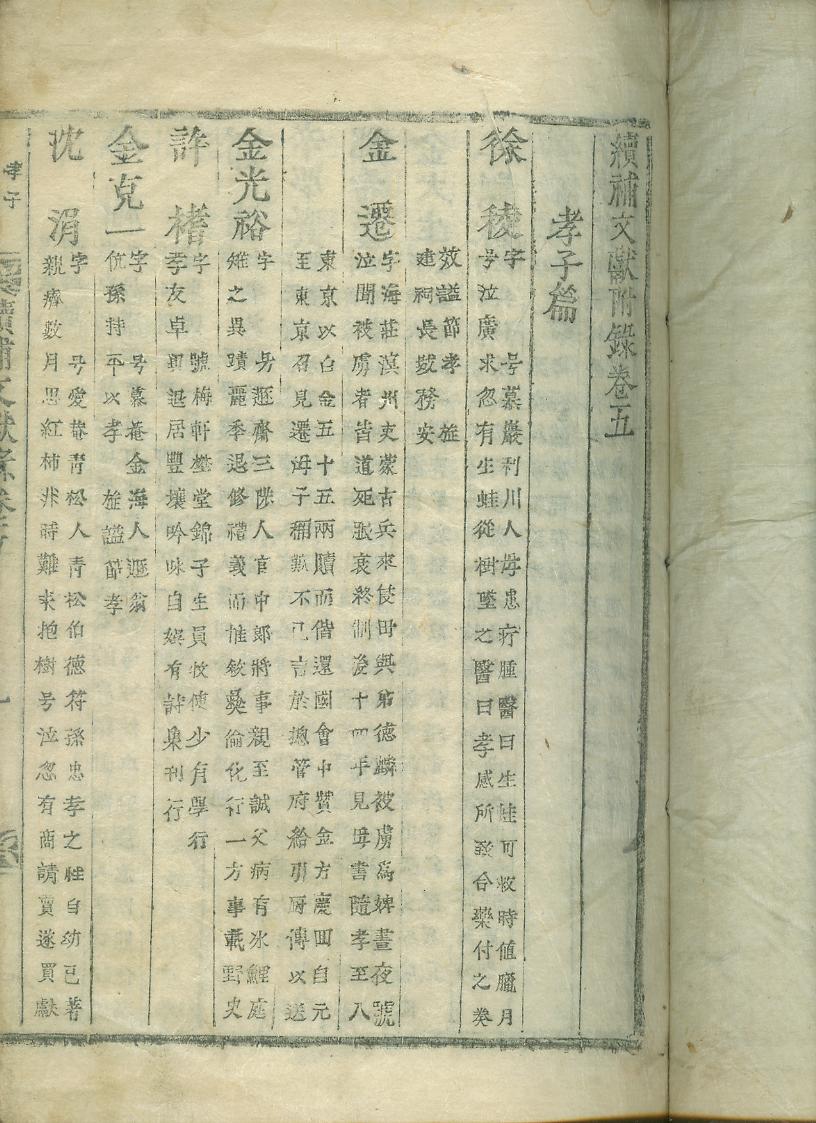 續補文獻附錄卷五
孝子篇
徐稜
字 号慕巖利川人母患疔腫醫曰生蛙可救時值臘月
号泣廣求忽有生蛙從樹墜之醫曰孝感所致合藥付之癸
效謚節孝 旌
建祠長城務安
金遷
字海莊溟州吏蒙古兵來侵母與弟德麟被虜爲婢晝夜號
泣聞被虜者皆道死服哀終制後十四年見母書隨孝至八
東京以白金五十五兩贖而偕還國會中贊金方慶回自元
至東京召見遷母子稱歎不已言於摠管府給引厨傳以送
金光裕
字 号遯齋三陟人官中郞將事親至誠父病有氷鯉庭
雉之異蹟麗季退修禮義而惟敘彝倫化行一方事載野史
許榰
字 號梅軒 堂錦子生員牧使少有學行
孝友卓 退居豐壤吟咏自娛有詩集刊行
金克一
字 号慕菴金海人遯翁
伉孫持平以孝 旌謚節孝
沈涓
字 号愛 靑松人靑松伯德符孫忠孝之性自幼已著
親癠數月思紅柿非時難求抱樹号泣忽有商請賣遂買獻
孝子
續補文獻錄卷五